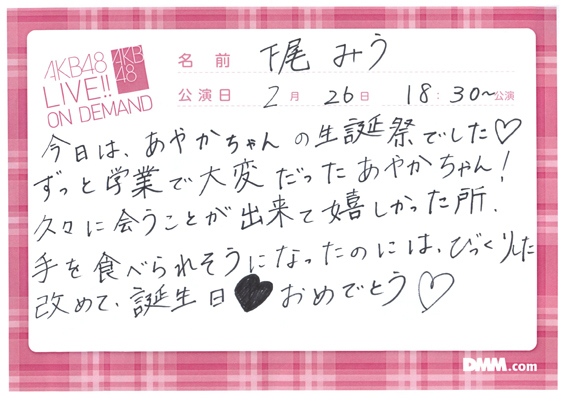 AKB48
LIVE!!
ON DEMAND
AKB
48
名前 下尾 みう
公演日 2月 26日 18:30~公演
今日は、あやかちゃんの生誕祭でした♡
ずっと学業で大変だったあやかちゃん!
久々に会うことが出来て嬉しかった所、
手を食べられそうになったのには、びっくりした
改めて、誕生日♥おめでとう♡
DMM.com